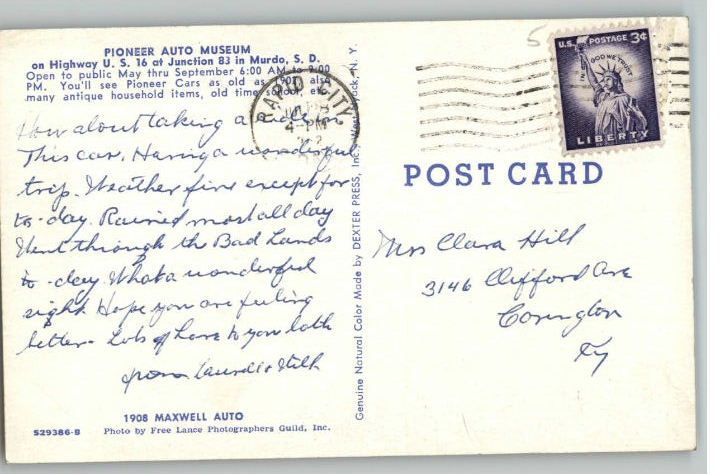 PIONEER AUTO MUSEUM
on Highway U. S. 16 at Junction 83 in Murdo, S. D.
Open to public May thru September 6:00 AM to 9:00
PM. You'll see Pioneer Cars as old as 1902 also
many antique household items, old time school, etc.
How about taking a ride in
This car. Having a wonderful
trip. Weather fine except for
to-day. Rained most all day
Went through the Bad Lands
to-day What a wonderful
sight. Hope you are feeling
better. Lots of Love to you both
from
1908 MAXWELL AUTO
S29386-B
Photo by Free Lance Photographers Guild, Inc.
Genuine Natural Color Made by DEXTER PRESS, Inc., West Nyack, N. Y.
RAPID CITY
4-PM
U.S. POSTAGE 3¢
IN GOD WE TRUST
LIBERTY
POST CARD
Mrs Clara Hill
3146 Clifford Ave
Covington
Ky